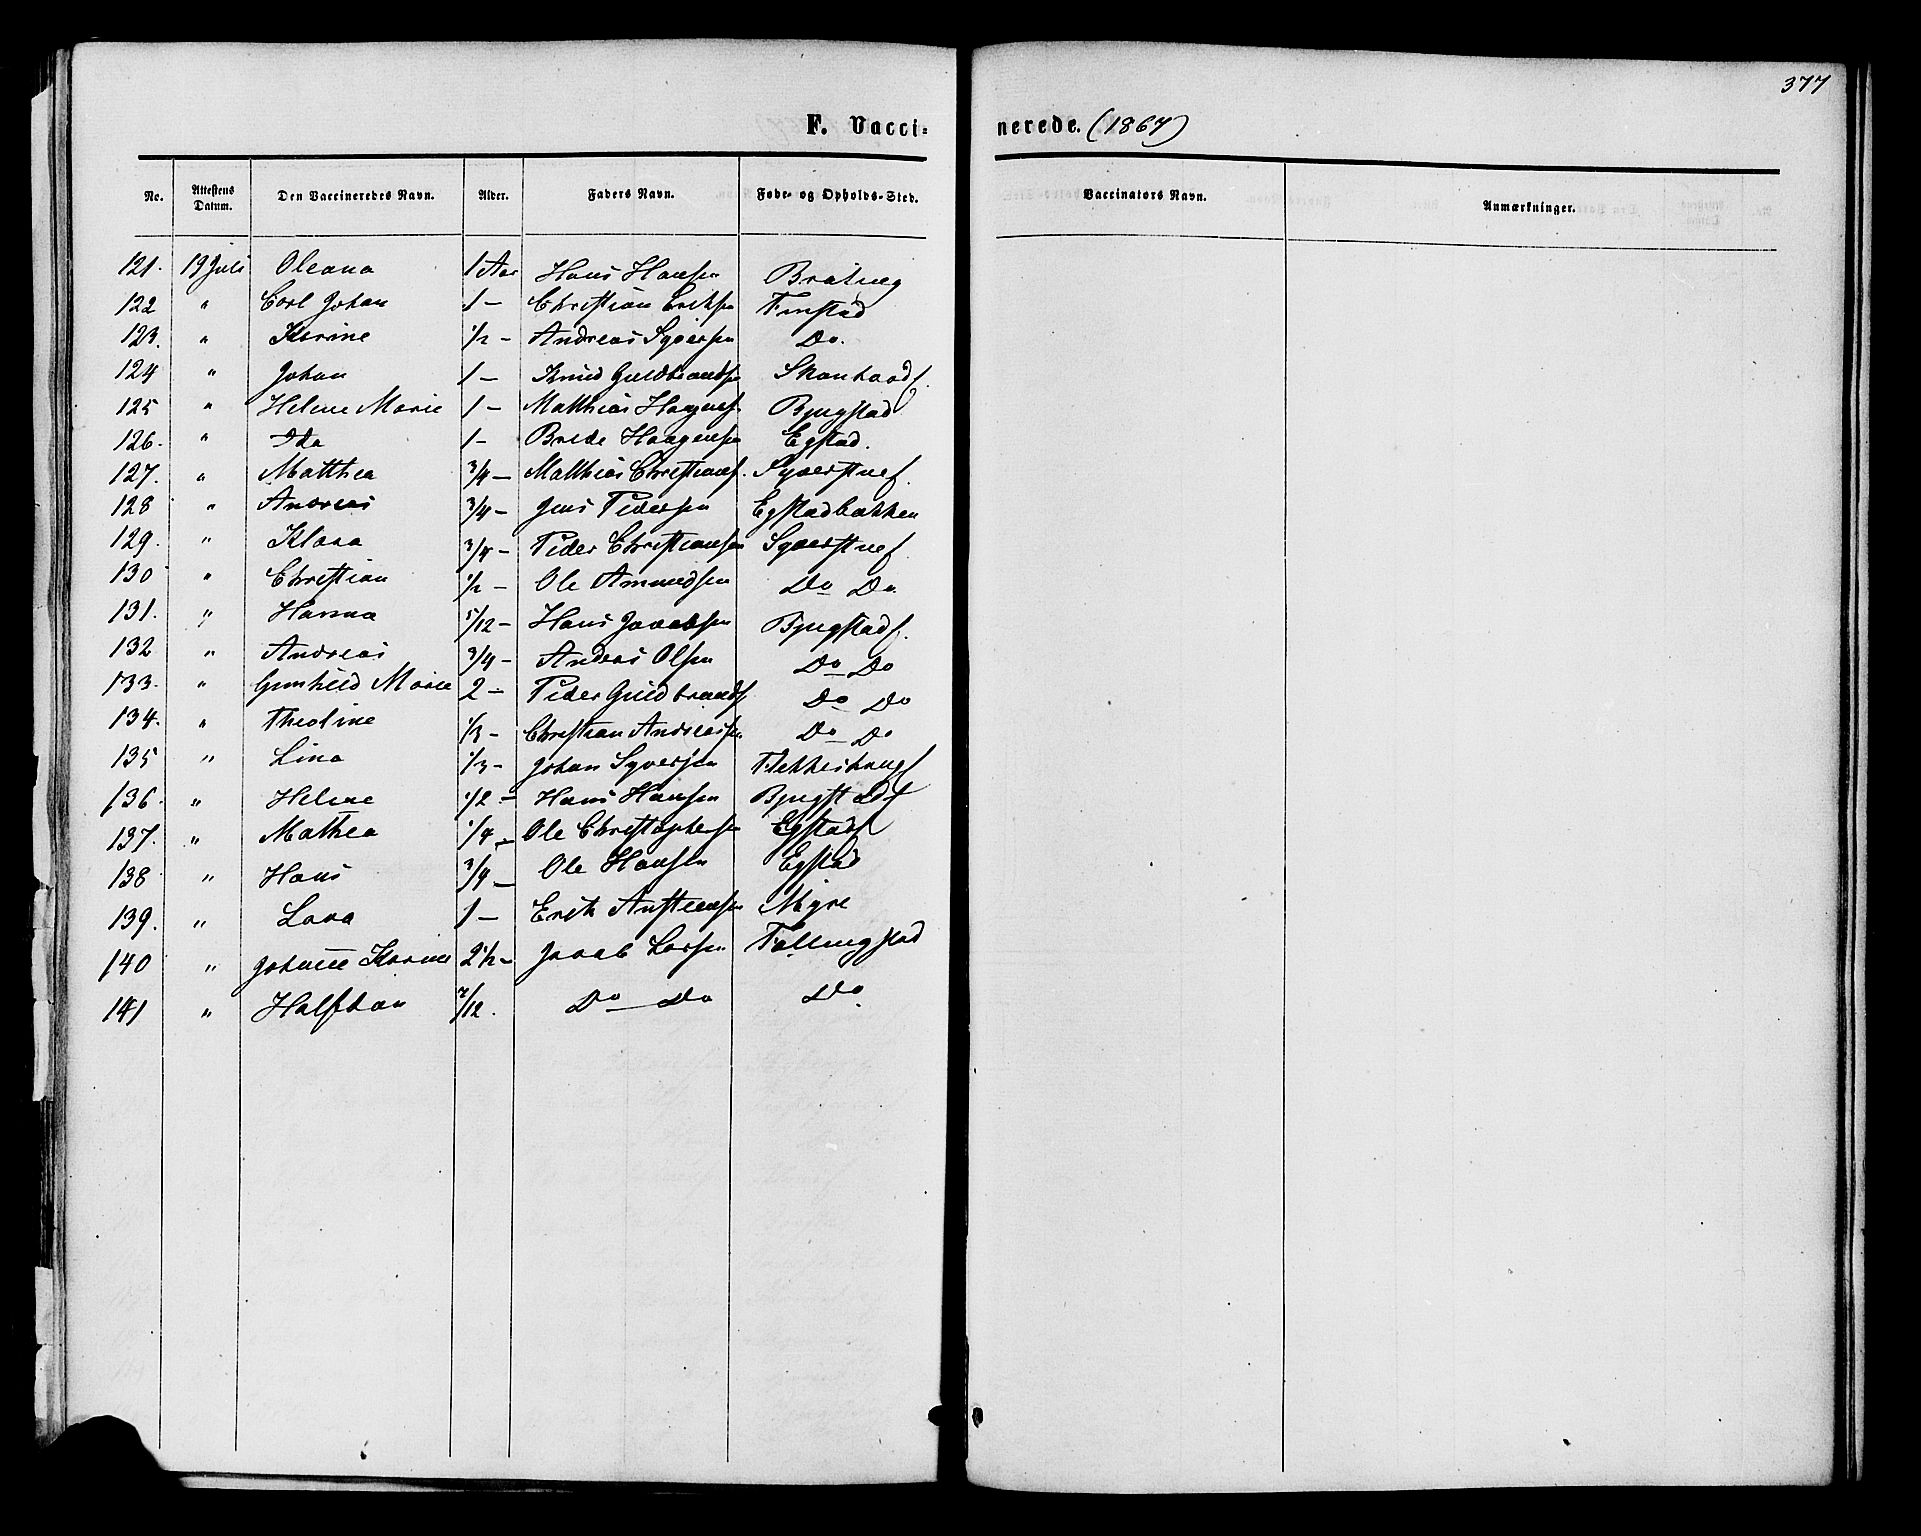 377
F. Vacci=
nerede. (1867)
No. Attestens Datum. Den Vaccineredes Navn. Alder. Faders Navn. Føde- og Opholds-Sted. Vaccinators Navn. Anmærkninger.
121. 19 Juli Oleana 1 Aar Hans Hansen
122 " Carl Johan 1 - Christian Eriksen Finstad
123. " Karine 1/2 - Andreas Syversen Do.
124 " Johan 1 - Knud Guldbrandsen
125 " Helene Marie 1 - Matthias Haagens. Bjugstad
126. " Ida 1 - Brede Haagensen Egstad.
127. " Matthea 3/4 - Matthias Christians. Syverstuef.
128 " Andreas 3/4 - Jens Pedersen Egstadbakken
129. " Klara 3/4 - Peder Christiansen Syverstuef.
130 " Christian 1/2 - Ole Amundsen Do Do
131. " Hanna 5/12 - Hans Jacobsen Bjugstadf.
132 " Andreas 3/4 - Andreas Olsen Do Do
133. " Gunhild Marie 2 - Peder Guldbrands. Do Do
134. " Theoline 1/3 - Christian Andreassen Do Do
135 " Lina 1/3 - Johan Syversen
136. " Helene 1/2 - Hans Hansen Bjugstadf
137. " Mathea 1/4 - Ole Christophersen Egstadf
138 " Hans 3/4 - Ole Hansen Egstad
139. " Lara 1 - Erik Anstensen Myre
140 " Johanne Karine 2 1/2 - Jacob Larsen
141 " Halfdan 7/12. Do Do Do